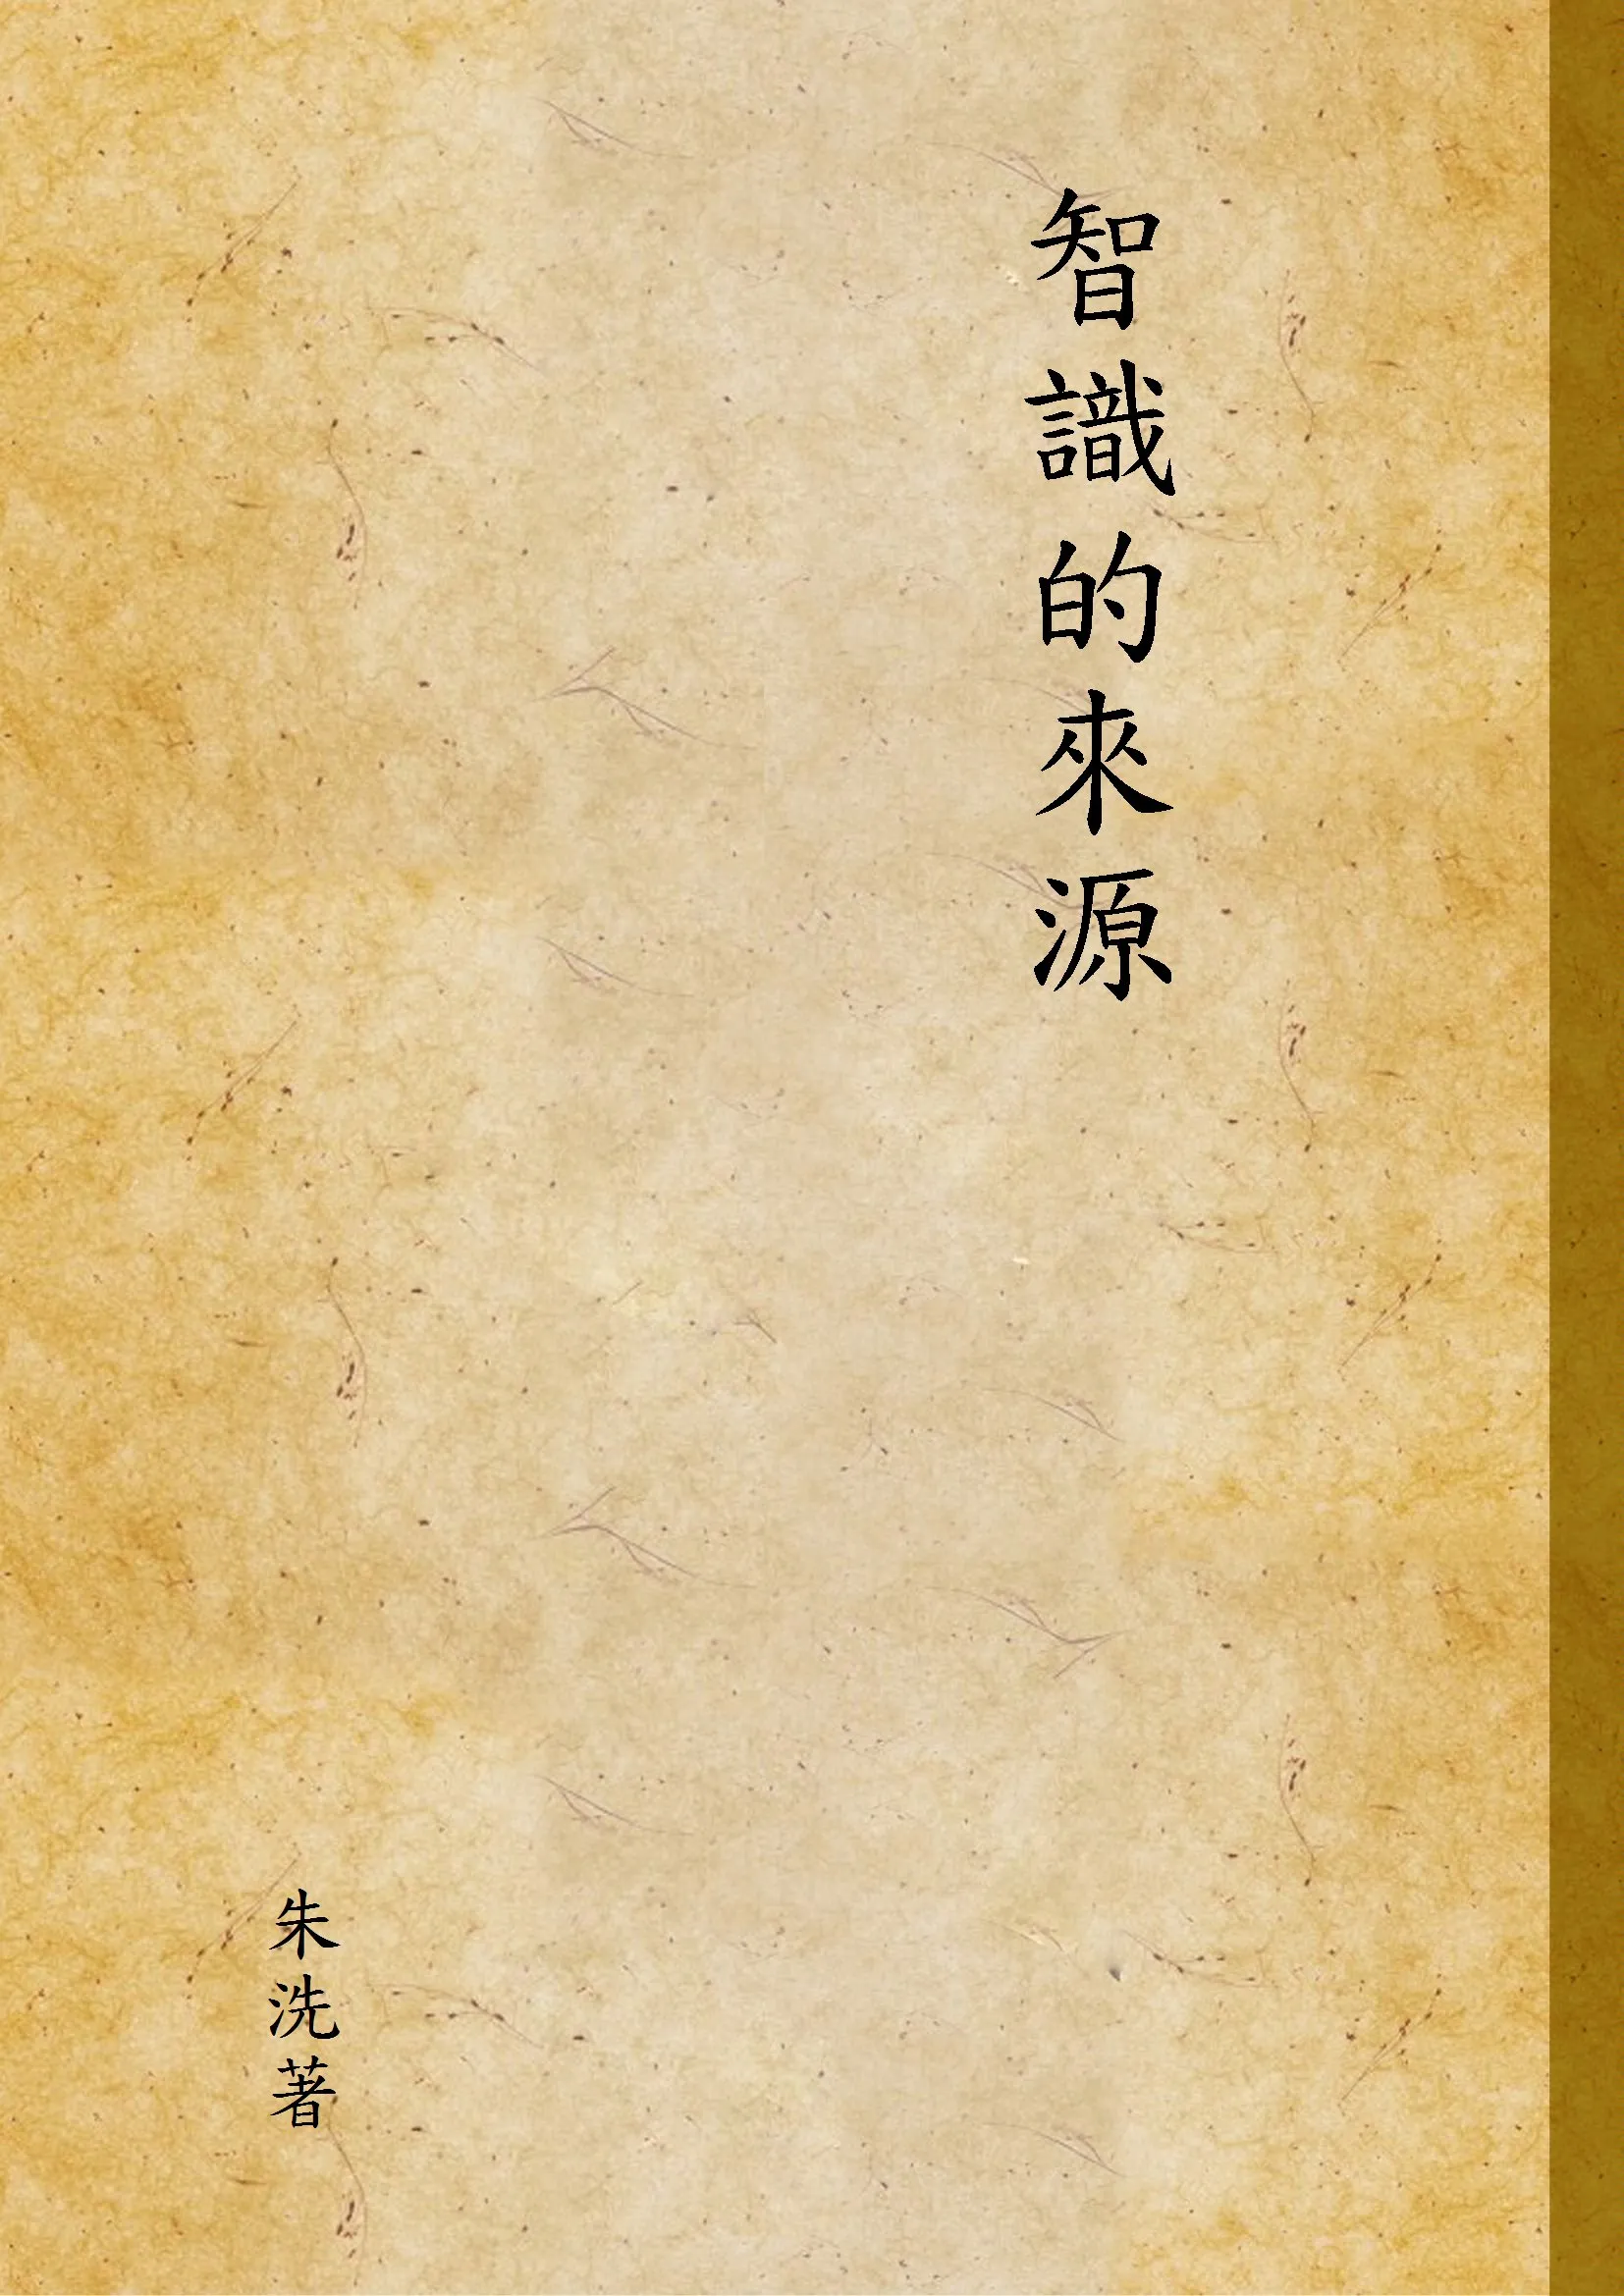 智識的來源
朱洗著